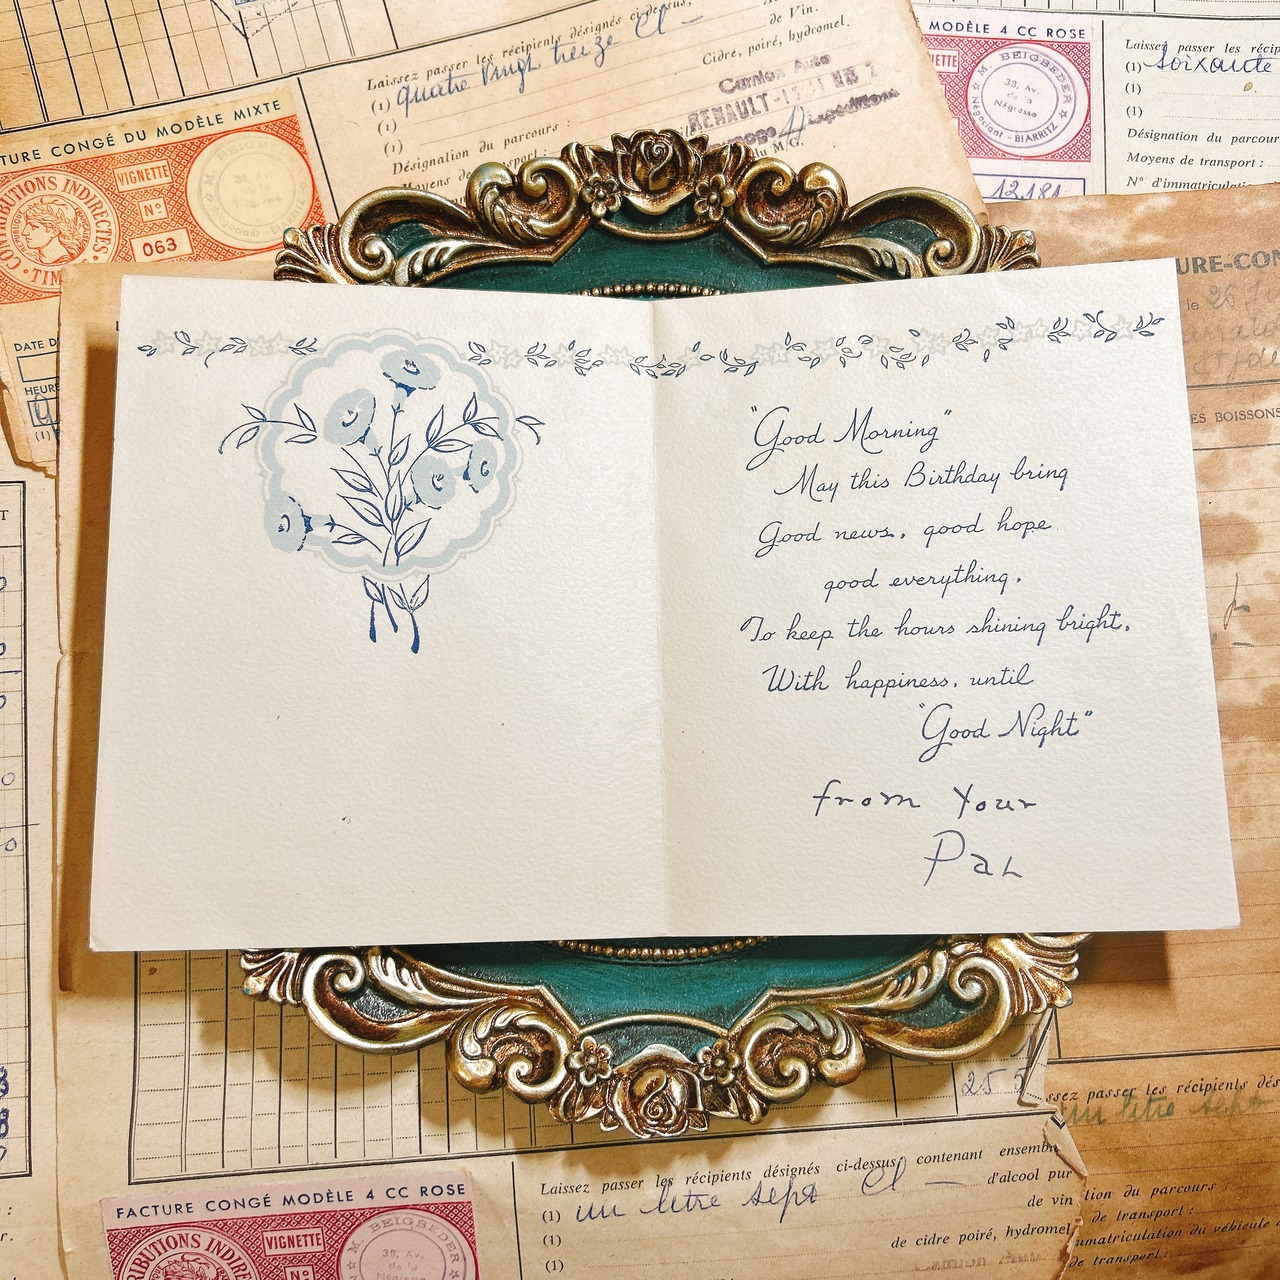 Laissez passer les récipients désignés ci-dessus,
(1) quatre vingt treize cl —
de Vin.
(1)
Cidre, poiré, hydromel,
(1)
Désignation du parcours :
Camion Auto
RENAULT
du M.G.
MODÈLE 4 CC ROSE
M. BEIGBEDER
38, Av.
de la
Négresse
Négociant - BIARRITZ
12.181
Laissez passer les récip
(1) soixante
(1)
(1)
Désignation du parcour
Moyens de transport :
N° d'immatricula
TURE CONGÉ DU MODÈLE MIXTE
CONTRIBUTIONS INDIRECTES
TIM
VIGNETTE
N°
063
DATE D
HEURE
(1)
URE-CON
le 26
ES BOISSONS
"Good Morning"
May this Birthday bring
Good news, good hope
good everything,
To keep the hours shining bright,
With happiness, until
"Good Night"
from Your
Pal
25 5
ssez passer les récipients dés
un litre sept
Laissez passer les récipients désignés ci-dessus, contenant ensemb
(1) un litre sept cl —
d'alcool pur
(1)
de vin
(1)
de cidre poiré, hydromel
tion du parcours :
de transport :
mmatriculation du véhicule
de transport :
FACTURE CONGÉ MODÈLE 4 CC ROSE
TRIBUTIONS INDIRE
VIGNETTE
N°
M. BEIGBEDER
38, Av.
de la